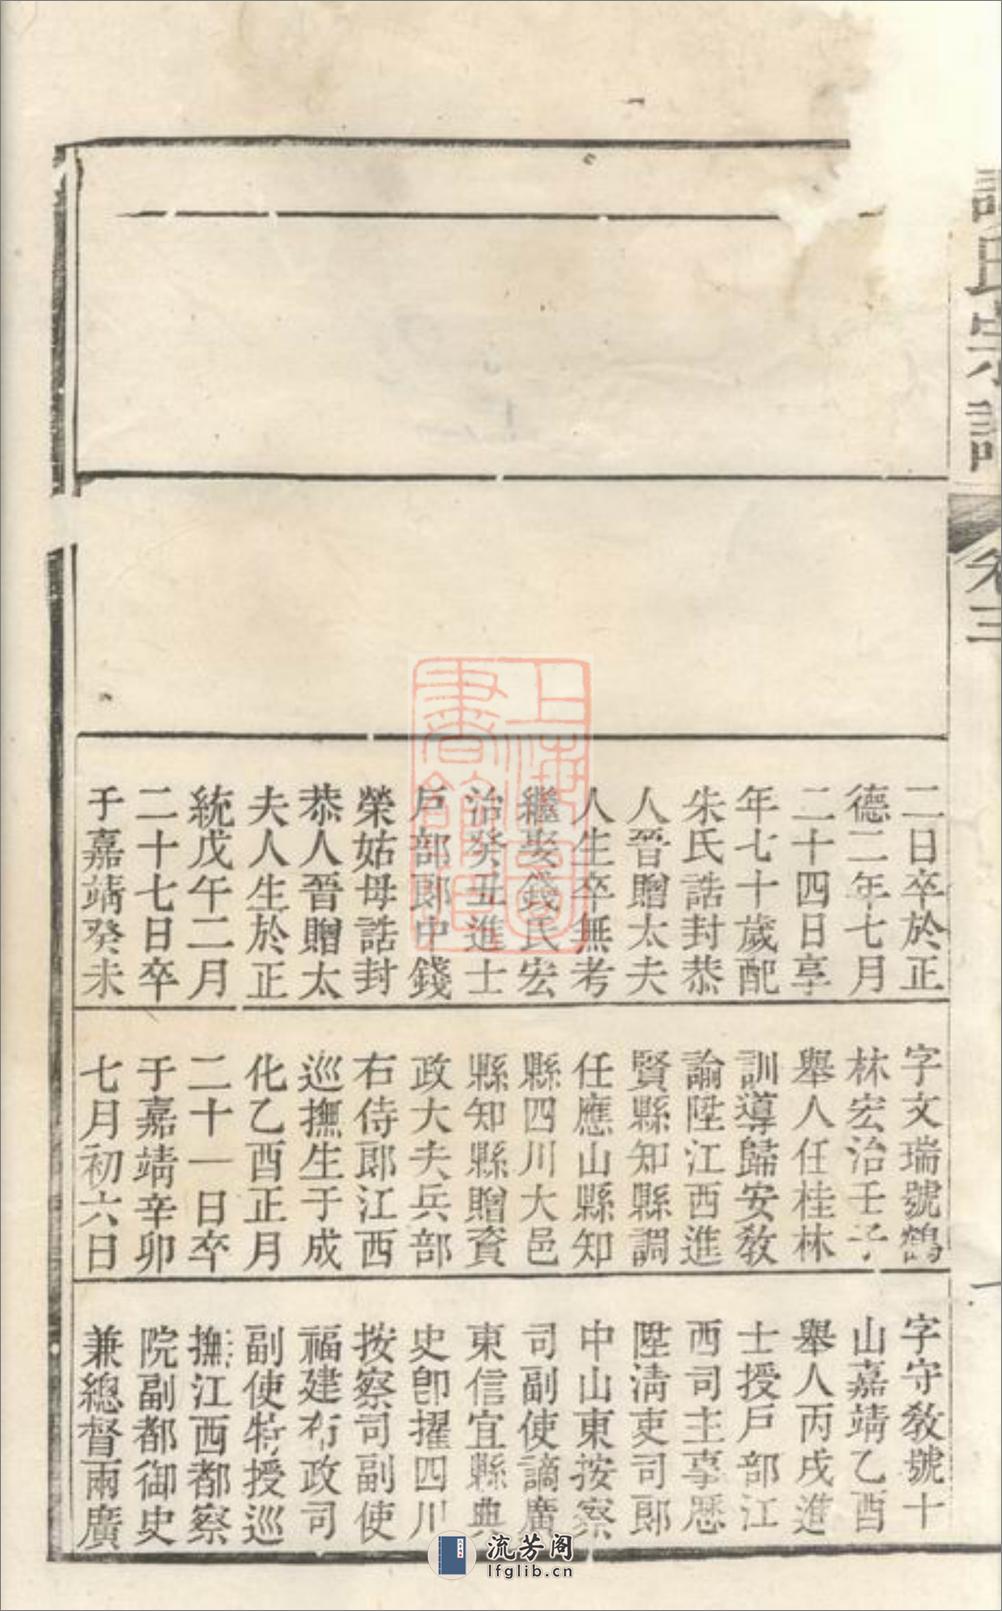 氏宗
卷三
二日卒於正
德二年七月
二十四日享
年七十歲配
朱氏誥封恭
人晉贈太夫
人生卒無考
繼娶錢氏宏
治癸丑進士
戶部郎中錢
榮姑母誥封
恭人晉贈太
夫人生於正
統戊午二月
二十七日卒
于嘉靖癸未
字文瑞號鶴
林宏治壬子
舉人任桂林
訓導歸安教
諭陞江西進
賢縣知縣調
任應山縣知
縣四川大邑
縣知縣贈資
政大夫兵部
右侍郎江西
巡撫生于成
化乙酉正月
二十一日卒
于嘉靖辛卯
七月初六日
字守教號十
山嘉靖乙酉
舉人丙戌進
士授戶部江
西司主事歷
陞清吏司郎
中山東按察
司副使謫廣
東信宜縣典
史卽擢四川
按察司副使
福建布政司
副使特授巡
撫江西都察
院副都御史
兼總督兩廣
上海圖書館藏
流芳阁
lfglib.cn